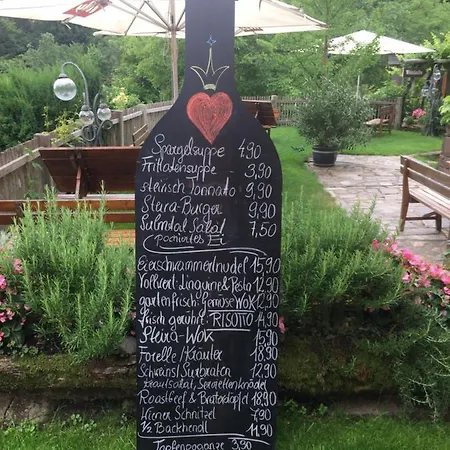 Spargelsuppe 4,90
Frittatensuppe 3,90
steirisch Tonnato 9,90
Steira-Burger 9,90
Salat 7,50
pochiertes Ei
Eierschwammerlnudel 15,90
Vollwert-Linguine & Pesto 12,90
gartenfrisch: Gemüse WOK 12,90
frisch gerührt: RISOTTO 14,90
Steira-WOK 15,90
Forelle / Kräuter 18,90
Schweinsl Surbraten 12,90
Krautsalat, Serviettenknödel
Roastbeef & Braterdäpfel 18,90
Wiener Schnitzel 7,90
½ Backhendl 11,90
3,90